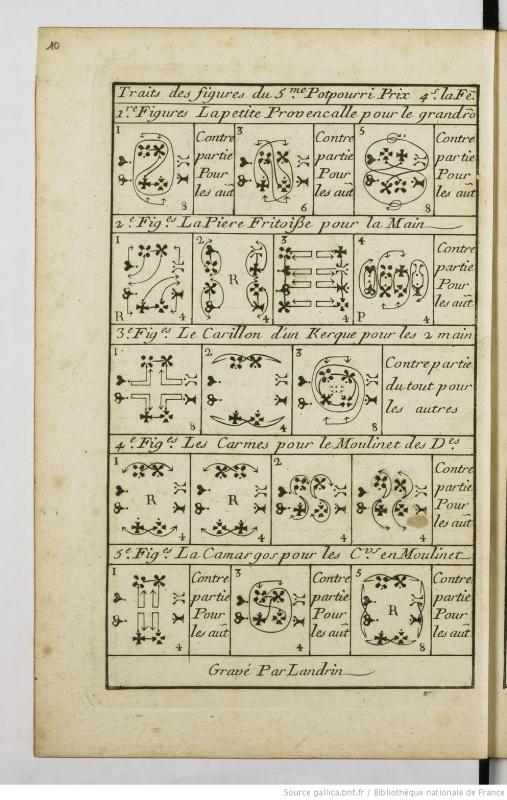 10
Traits des figures du 5.me Potpourri Prix 4.s la Fe.
1.re Figures La petite Provencalle pour le grand rõ
1 8 Contre partie Pour les aut 3 6 Contre partie Pour les aut 5 8 Contre partie Pour les aut
2.e Fig.es La Piere Fritoiße pour la Main
1 R 4 2 R 4 3 4 4 P 4 Contre partie Pour les aut
3.e Fig.es Le Carillon d'un Kerque pour les 2 main
1 8 2 4 3 8 Contre partie du tout pour les autres
4.e Fig.es Les Carmes pour le Moulinet des D.es
1 R 4 R 4 2 4 4 Contre partie Pour les aut
5.e Fig.es La Camargos pour les C.vs en Moulinet
1 4 Contre partie Pour les aut 3 4 Contre partie Pour les aut 5 R 8 Contre partie Pour les aut
Gravé Par Landrin
Source gallica.bnf.fr / Bibliothèque nationale de France